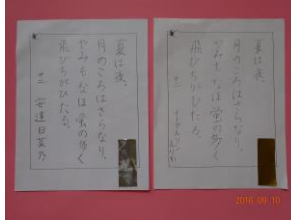 夏は夜。
月のころはさらなり。
やみもなほ蛍の多く
飛びちがひたる。
夏は夜。
月のころはさらなり。
やみもなほ蛍の多く
飛びちがひたる。
2016.09.10